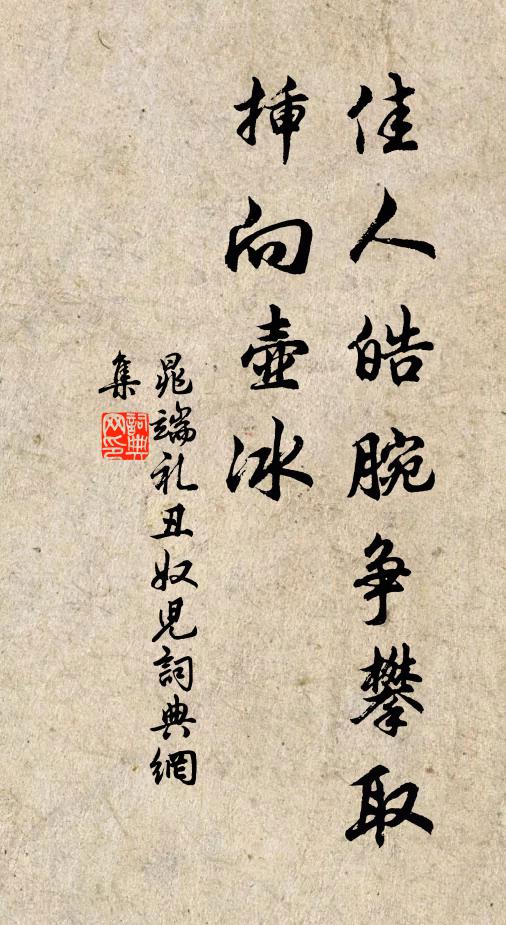 佳人皓腕争攀取
插向壶冰
晁端礼丑奴儿詞典網
集
詞典网印